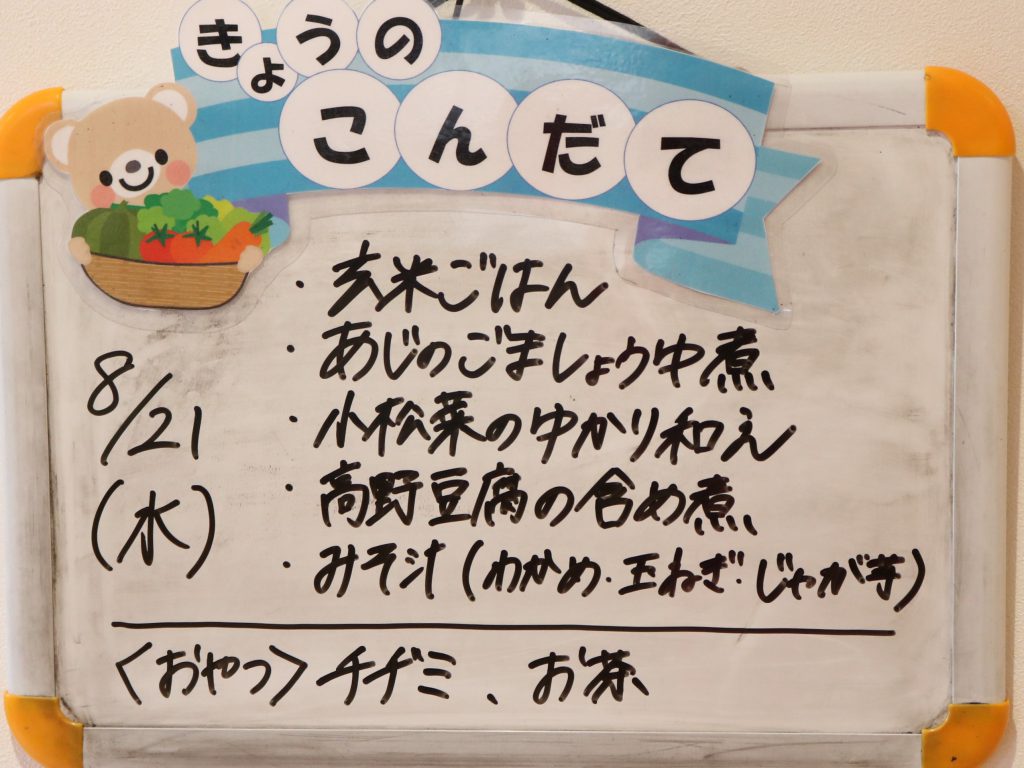 きょうの
こんだて
8/21
(水)
・玄米ごはん
・あじのごましょうゆ煮
・小松菜のゆかり和え
・高野豆腐の含め煮
・みそ汁(わかめ・玉ねぎ・じゃが芋)
〈おやつ〉チヂミ、お茶